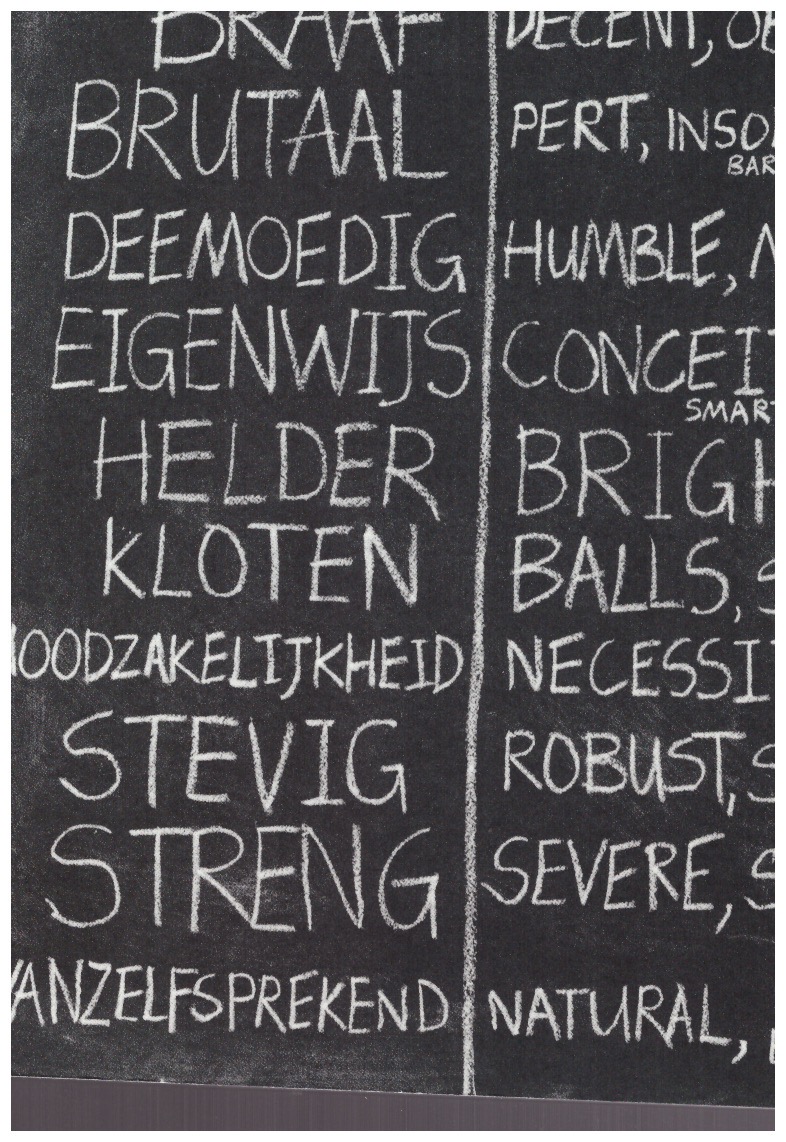 BRAAF DECENT, OB
BRUTAAL PERT, INSOL
BAR
DEEMOEDIG HUMBLE, M
EIGENWIJS CONCEIT
SMART
HELDER BRIGH
KLOTEN BALLS, S
NOODZAKELIJKHEID NECESSIT
STEVIG ROBUST, S
STRENG SEVERE, S
VANZELFSPREKEND NATURAL,